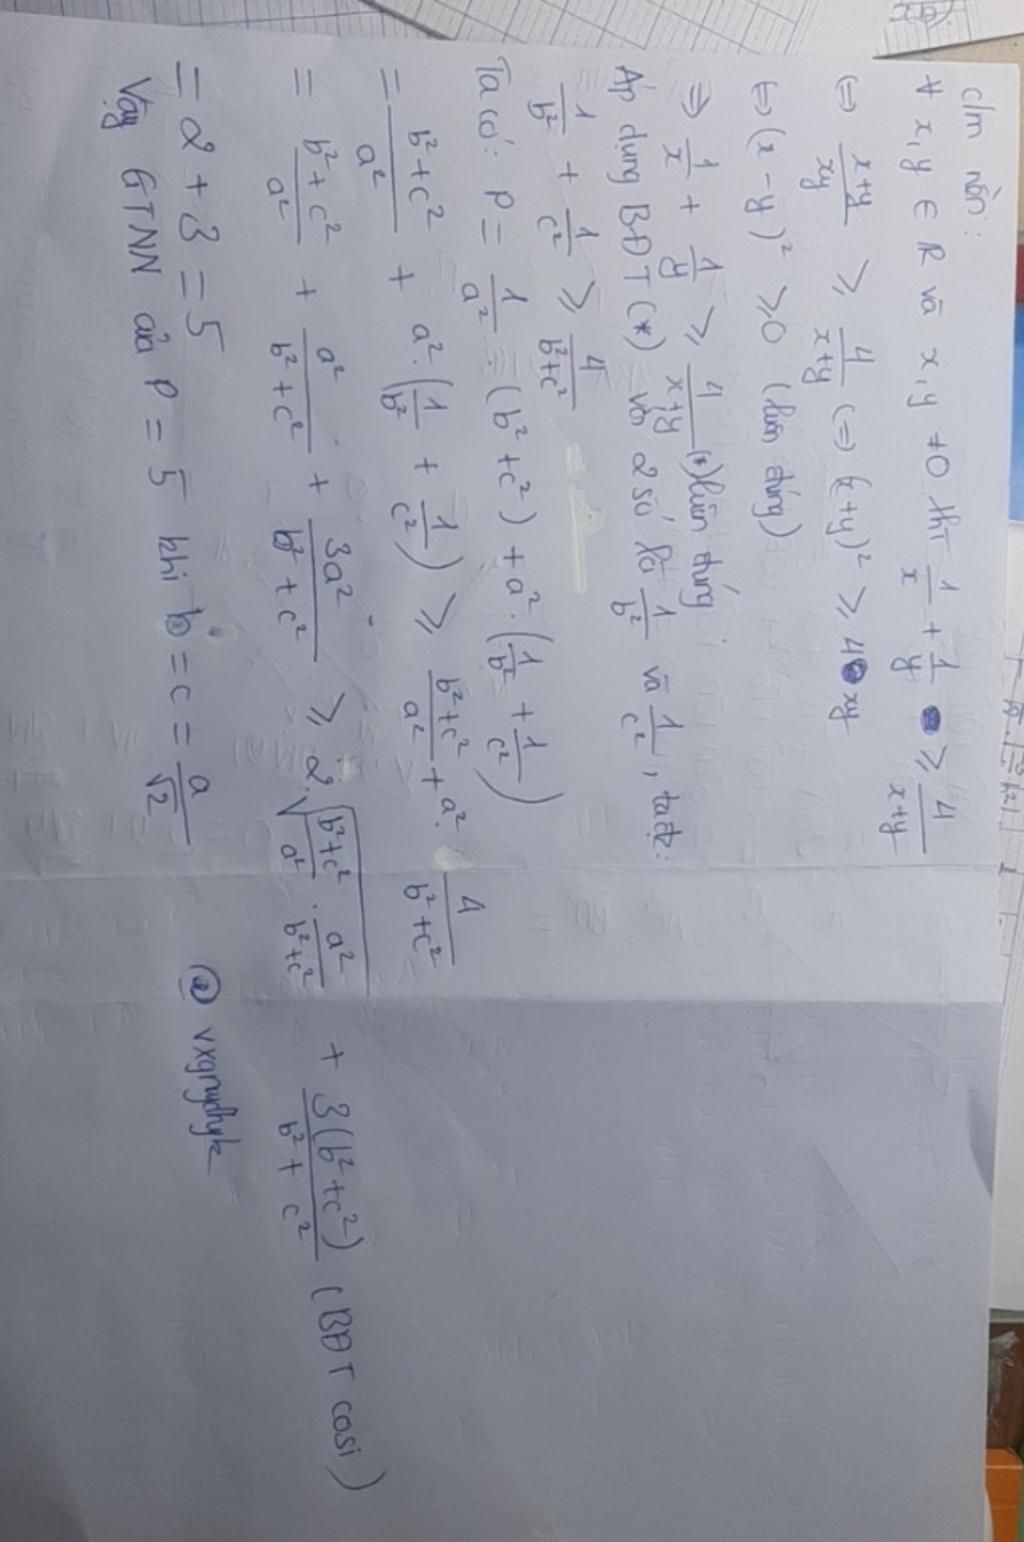 c/m nốn:
∀ x, y ∈ R và x, y ≠ 0 thì 1/x + 1/y ≥ 4/(x+y)
⇔ (x+y)/xy ≥ 4/(x+y) ⇔ (x+y)² ≥ 4xy
⇔ (x-y)² ≥ 0 (luôn đúng)
⇒ 1/x + 1/y ≥ 4/(x+y) (*) luôn đúng
Áp dụng BĐT (*) với 2 số là 1/b² và 1/c², ta đc:
1/b² + 1/c² ≥ 4/(b²+c²)
Ta có: P = 1/a² · (b²+c²) + a² · (1/b² + 1/c²)
= (b²+c²)/a² + a² · (1/b² + 1/c²) ≥ (b²+c²)/a² + a² · 4/(b²+c²)
= (b²+c²)/a² + a²/(b²+c²) + 3a²/(b²+c²) ≥ 2 · √((b²+c²)/a² · a²/(b²+c²)) + 3(b²+c²)/(b²+c²) (BĐT cosi)
= 2 + 3 = 5
Vậy GTNN của P = 5 khi b = c = a/√2